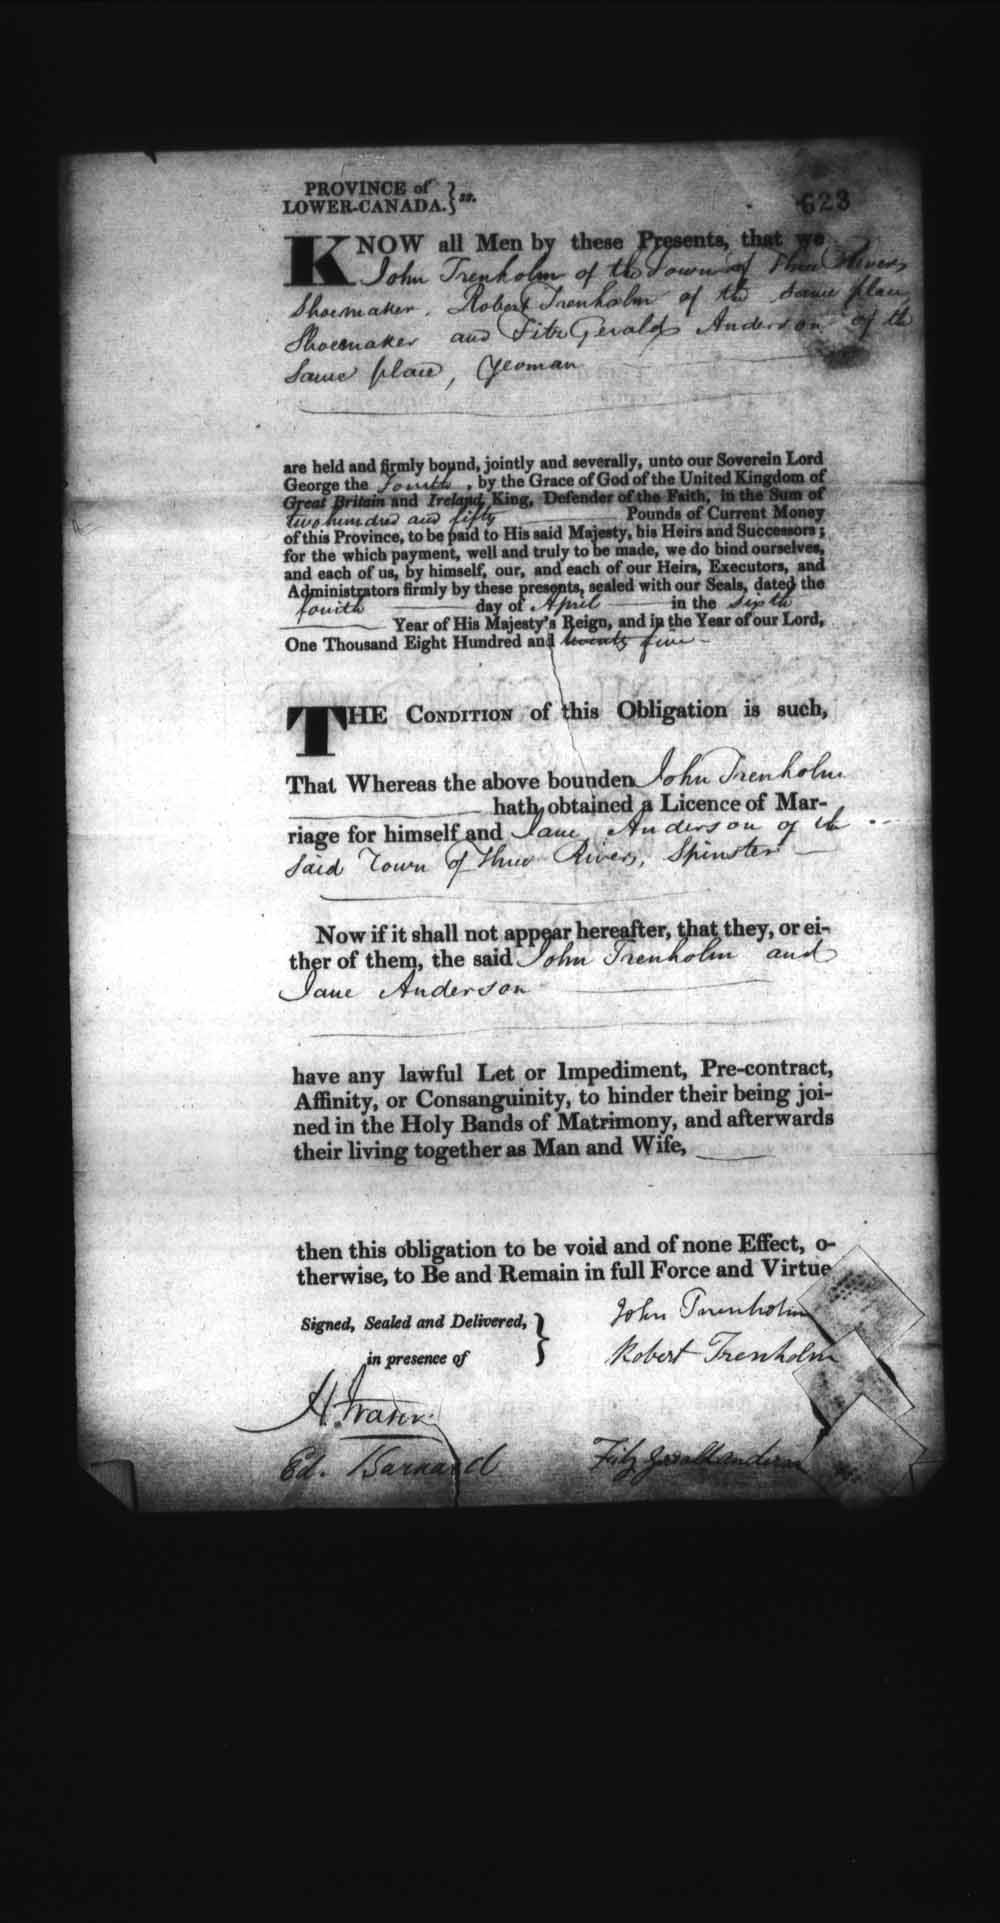 PROVINCE of
LOWER-CANADA. } ss.
623
KNOW all Men by these Presents, that we
John Trenholm of the Town of Three Rivers
Shoemaker, Robert Trenholm of the same place
Shoemaker and Fitz Gerald Anderson of the
same place, Yeoman
are held and firmly bound, jointly and severally, unto our Soverein Lord
George the Fourth, by the Grace of God of the United Kingdom of
Great Britain and Ireland, King, Defender of the Faith, in the Sum of
two hundred and fifty Pounds of Current Money
of this Province, to be paid to His said Majesty, his Heirs and Successors;
for the which payment, well and truly to be made, we do bind ourselves,
and each of us, by himself, our, and each of our Heirs, Executors, and
Administrators firmly by these presents, sealed with our Seals, dated the
fourth day of April in the sixth
Year of His Majesty's Reign, and in the Year of our Lord,
One Thousand Eight Hundred and twenty five
THE CONDITION of this Obligation is such,
That Whereas the above bounden John Trenholm
hath obtained a Licence of Mar-
riage for himself and Jane Anderson of the
said Town of Three Rivers, Spinster
Now if it shall not appear hereafter, that they, or ei-
ther of them, the said John Trenholm and
Jane Anderson
have any lawful Let or Impediment, Pre-contract,
Affinity, or Consanguinity, to hinder their being joi-
ned in the Holy Bands of Matrimony, and afterwards
their living together as Man and Wife,
then this obligation to be void and of none Effect, o-
therwise, to Be and Remain in full Force and Virtue
Signed, Sealed and Delivered,
in presence of
John Trenholm
Robert Trenholm
H. Fraser
Ed. Barnard
Fitzgerald Anderson